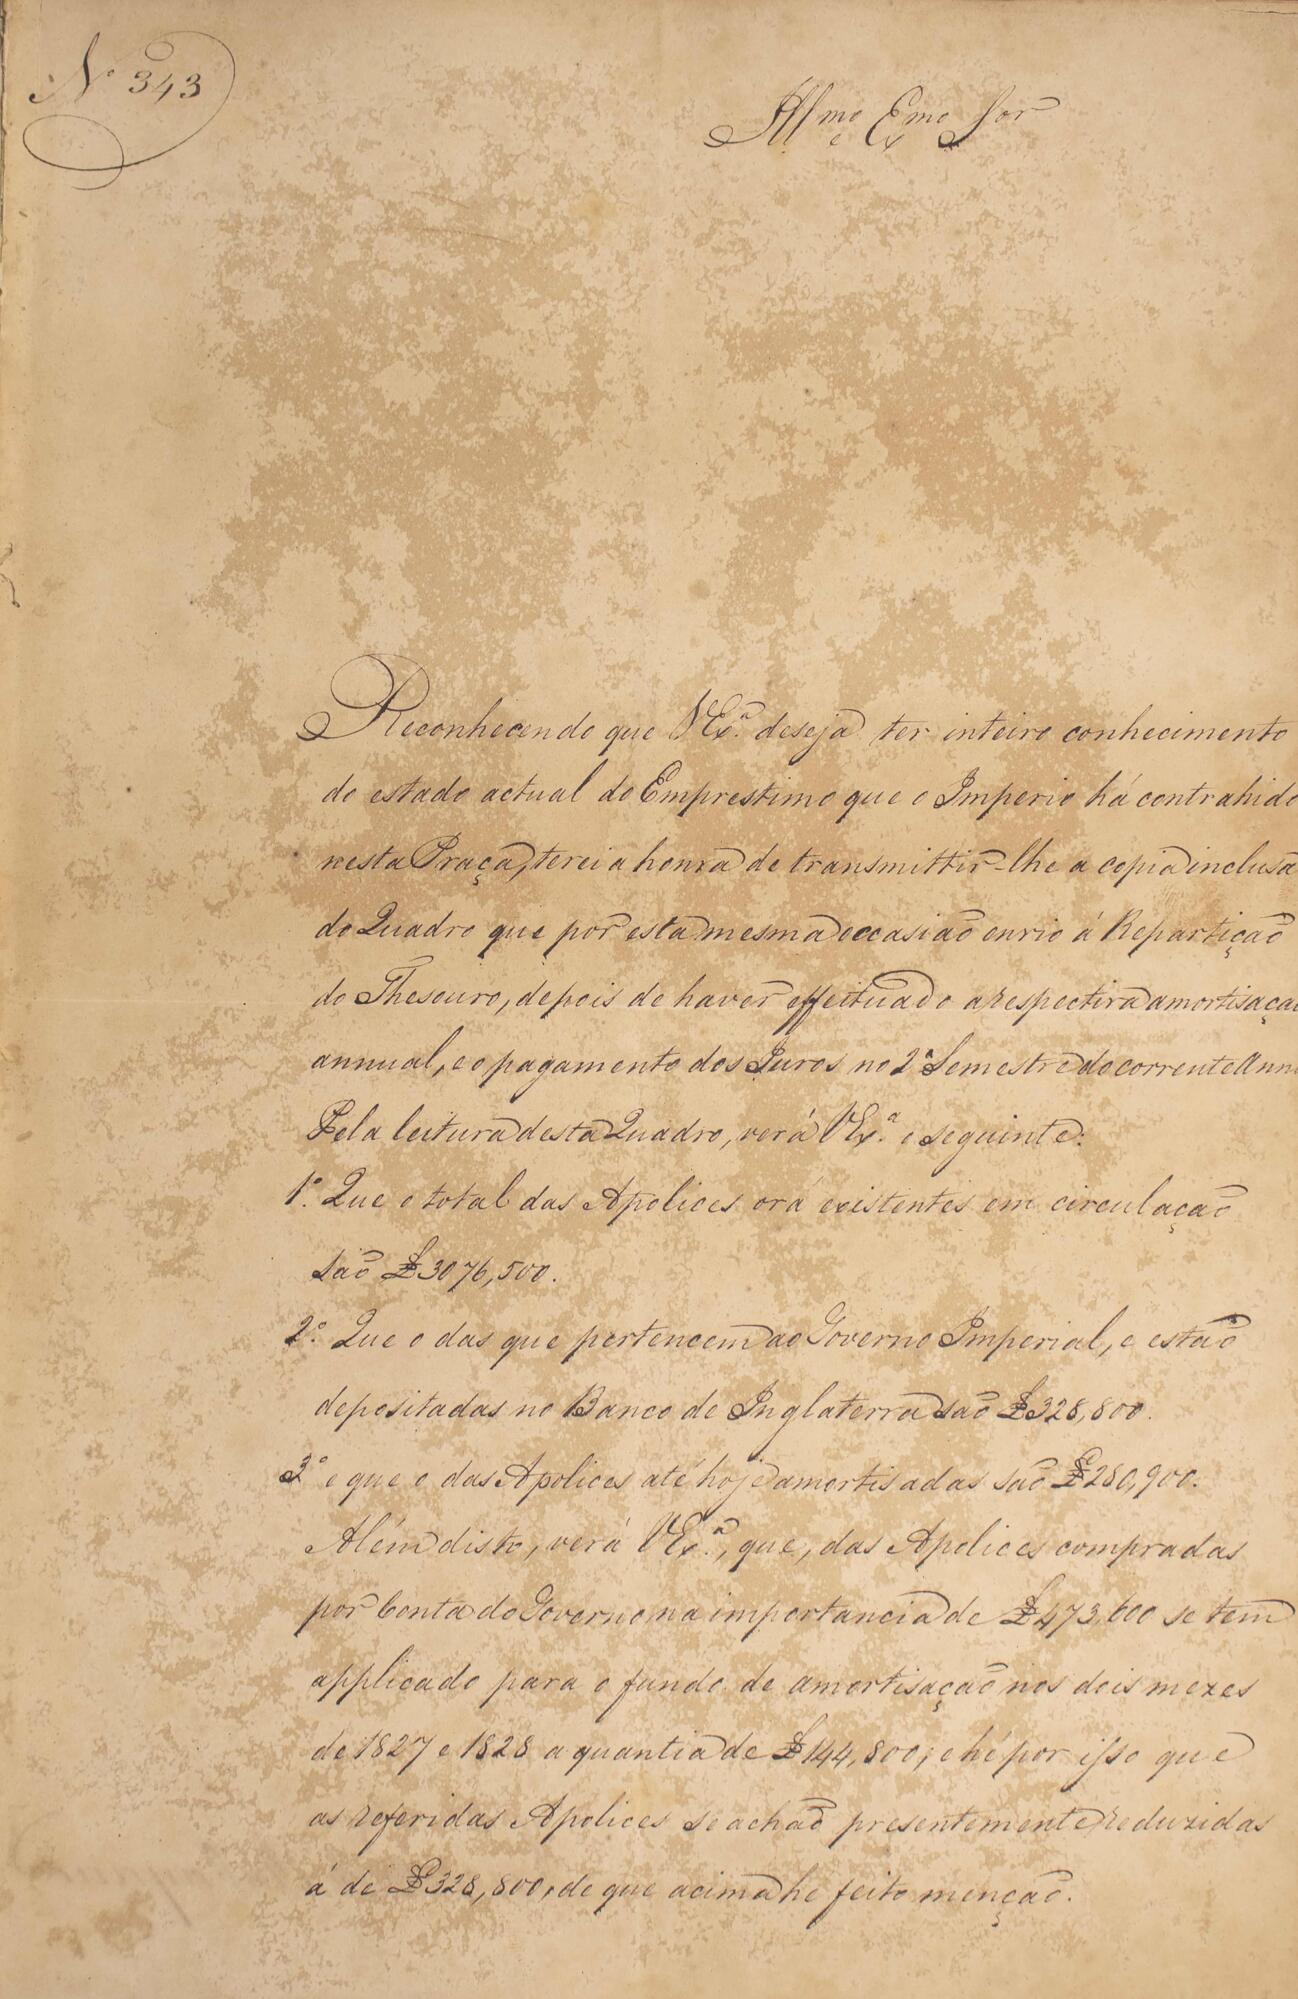 Nº 343
Illmo e Exmo Sor
Reconhecendo que VExª. deseja ter inteiro conhecimento
do estado actual do Emprestimo que o Imperio há contrahido
nesta Praça, terei a honra de transmittir-lhe a copia inclusa
do Quadro que por esta mesma occasião envio á Repartição
do Thesouro, depois de haver effeituado a respectiva amortisação
annual, e o pagamento dos Juros no 2º Semestre do corrente Anno
Pela leitura desta Quadro, verá VExª. o seguinte:
1º. Que o total das Apolices ora existentes em circulação
são £3076,500.
2º. Que o das que pertencem ao Governo Imperial, e estão
depositadas no Banco de Inglaterra são £328,800.
3º e que o das Apolices até hoje amortisadas são £280,900.
Além disto, verá VExª., que, das Apolices compradas
por Conta do Governo na importancia de £473,600 se tem
applicado para o fundo de amortisação nos dois mezes
de 1827 e 1828 a quantia de £144,800; e hé por isso que
as referidas Apolices se achão presentemente reduzidas
á de £328,800, de que acima he feito menção.